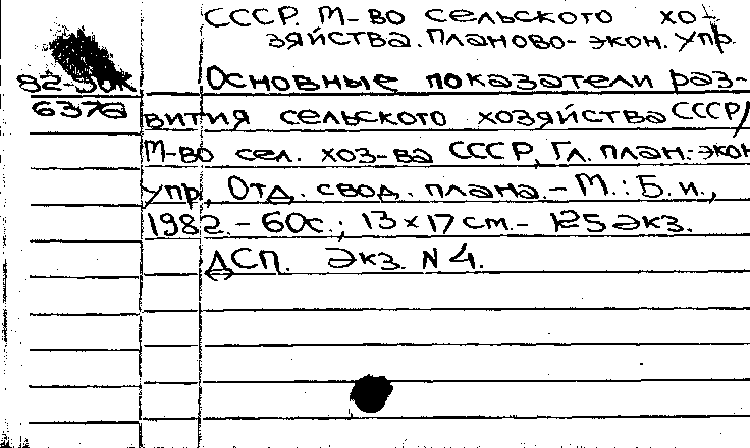 СССР. М-во сельского хо-
зяйства. Планово-экон. упр.
82-30к
Основные показатели раз-
6376
вития сельского хозяйства СССР/
М-во сел. хоз-ва СССР, Гл. план.-экон
упр., Отд. свод. плана. - М.: Б.и.,
1982. - 60с.; 13×17 см. - 125 экз.
ДСП. Экз. N 4.